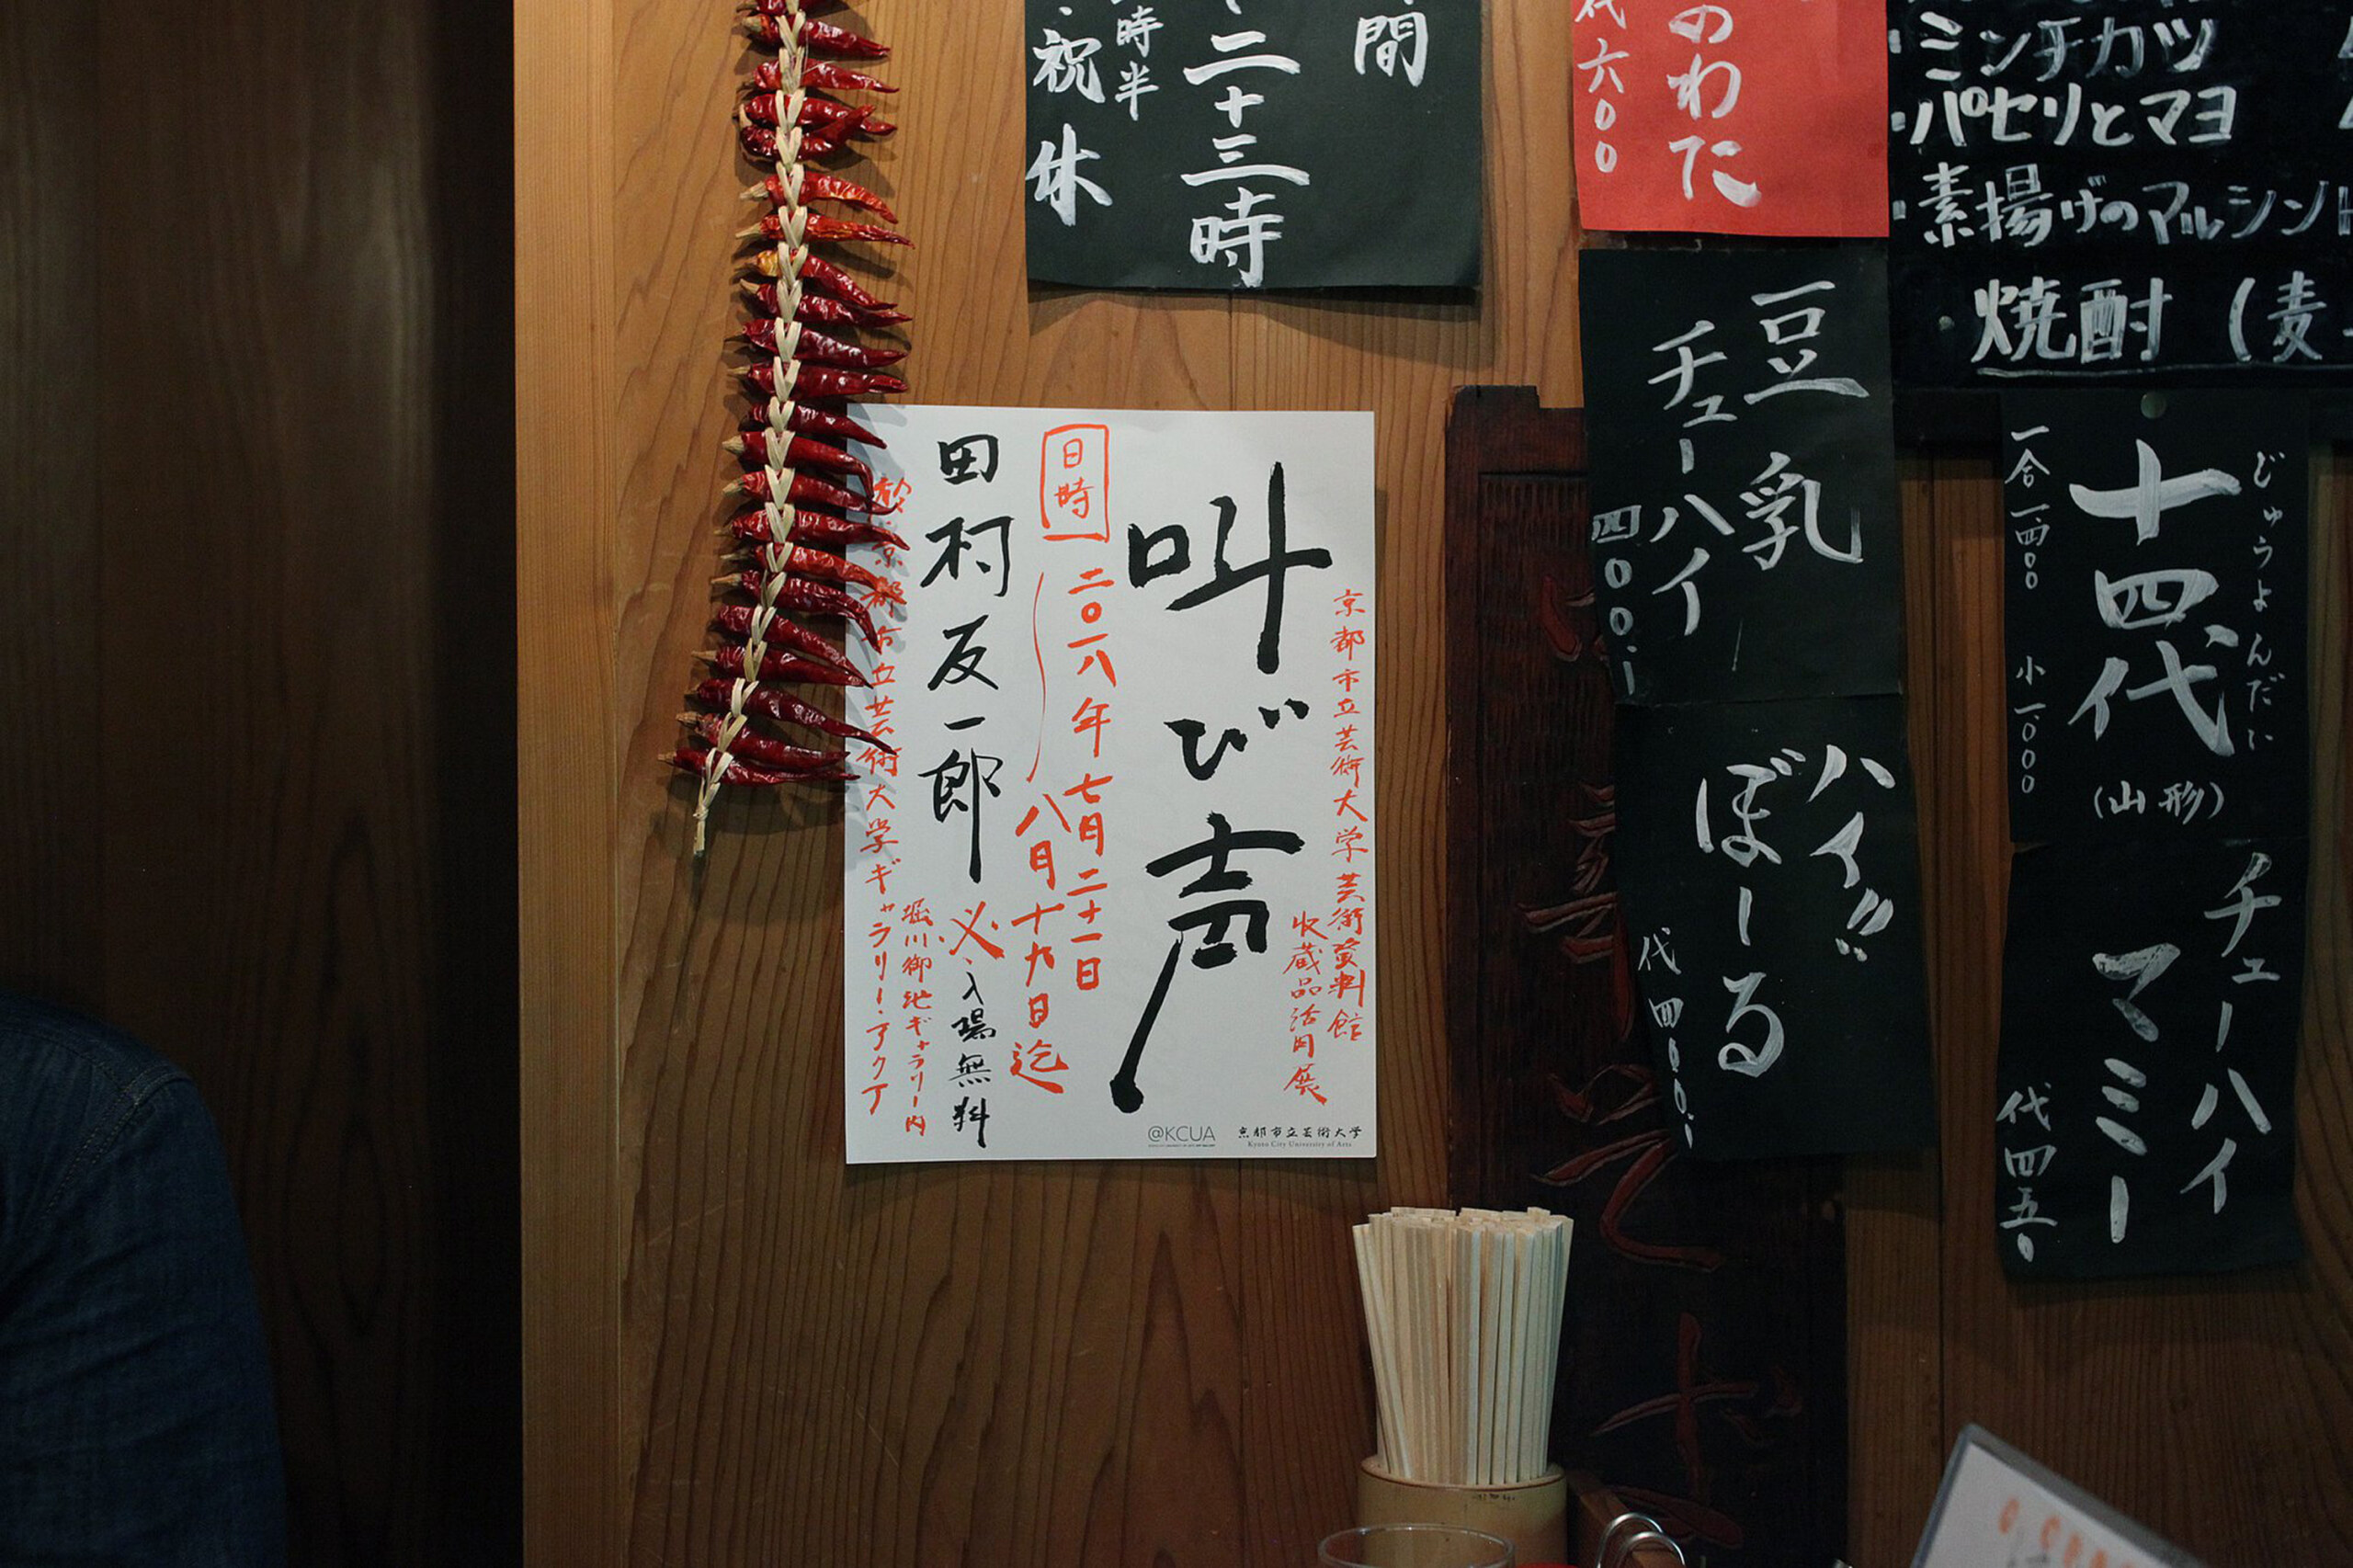 間
二十三時
時半
祝
休
のわた
代六〇〇
・ミンチカツ
・パセリとマヨ
・素揚げのマルシン
・焼酎(麦
豆乳
チューハイ
四〇〇.i
ハイ!!
ぼーる
代四〇〇.i
じゅうよんだい
十四代
(山形)
一合一四〇〇 小一〇〇〇
チューハイ
マミー
代四五〇
京都市立芸術大学芸術資料館
収蔵品活用展
叫び声
日時
二〇一八年七月二十一日
八月十九日迄
田村友一郎
入場無料
京都市立芸術大学ギャラリー・アクア
堀川御池ギャラリー内
@KCUA
京都市立芸術大学
Kyoto City University of Arts